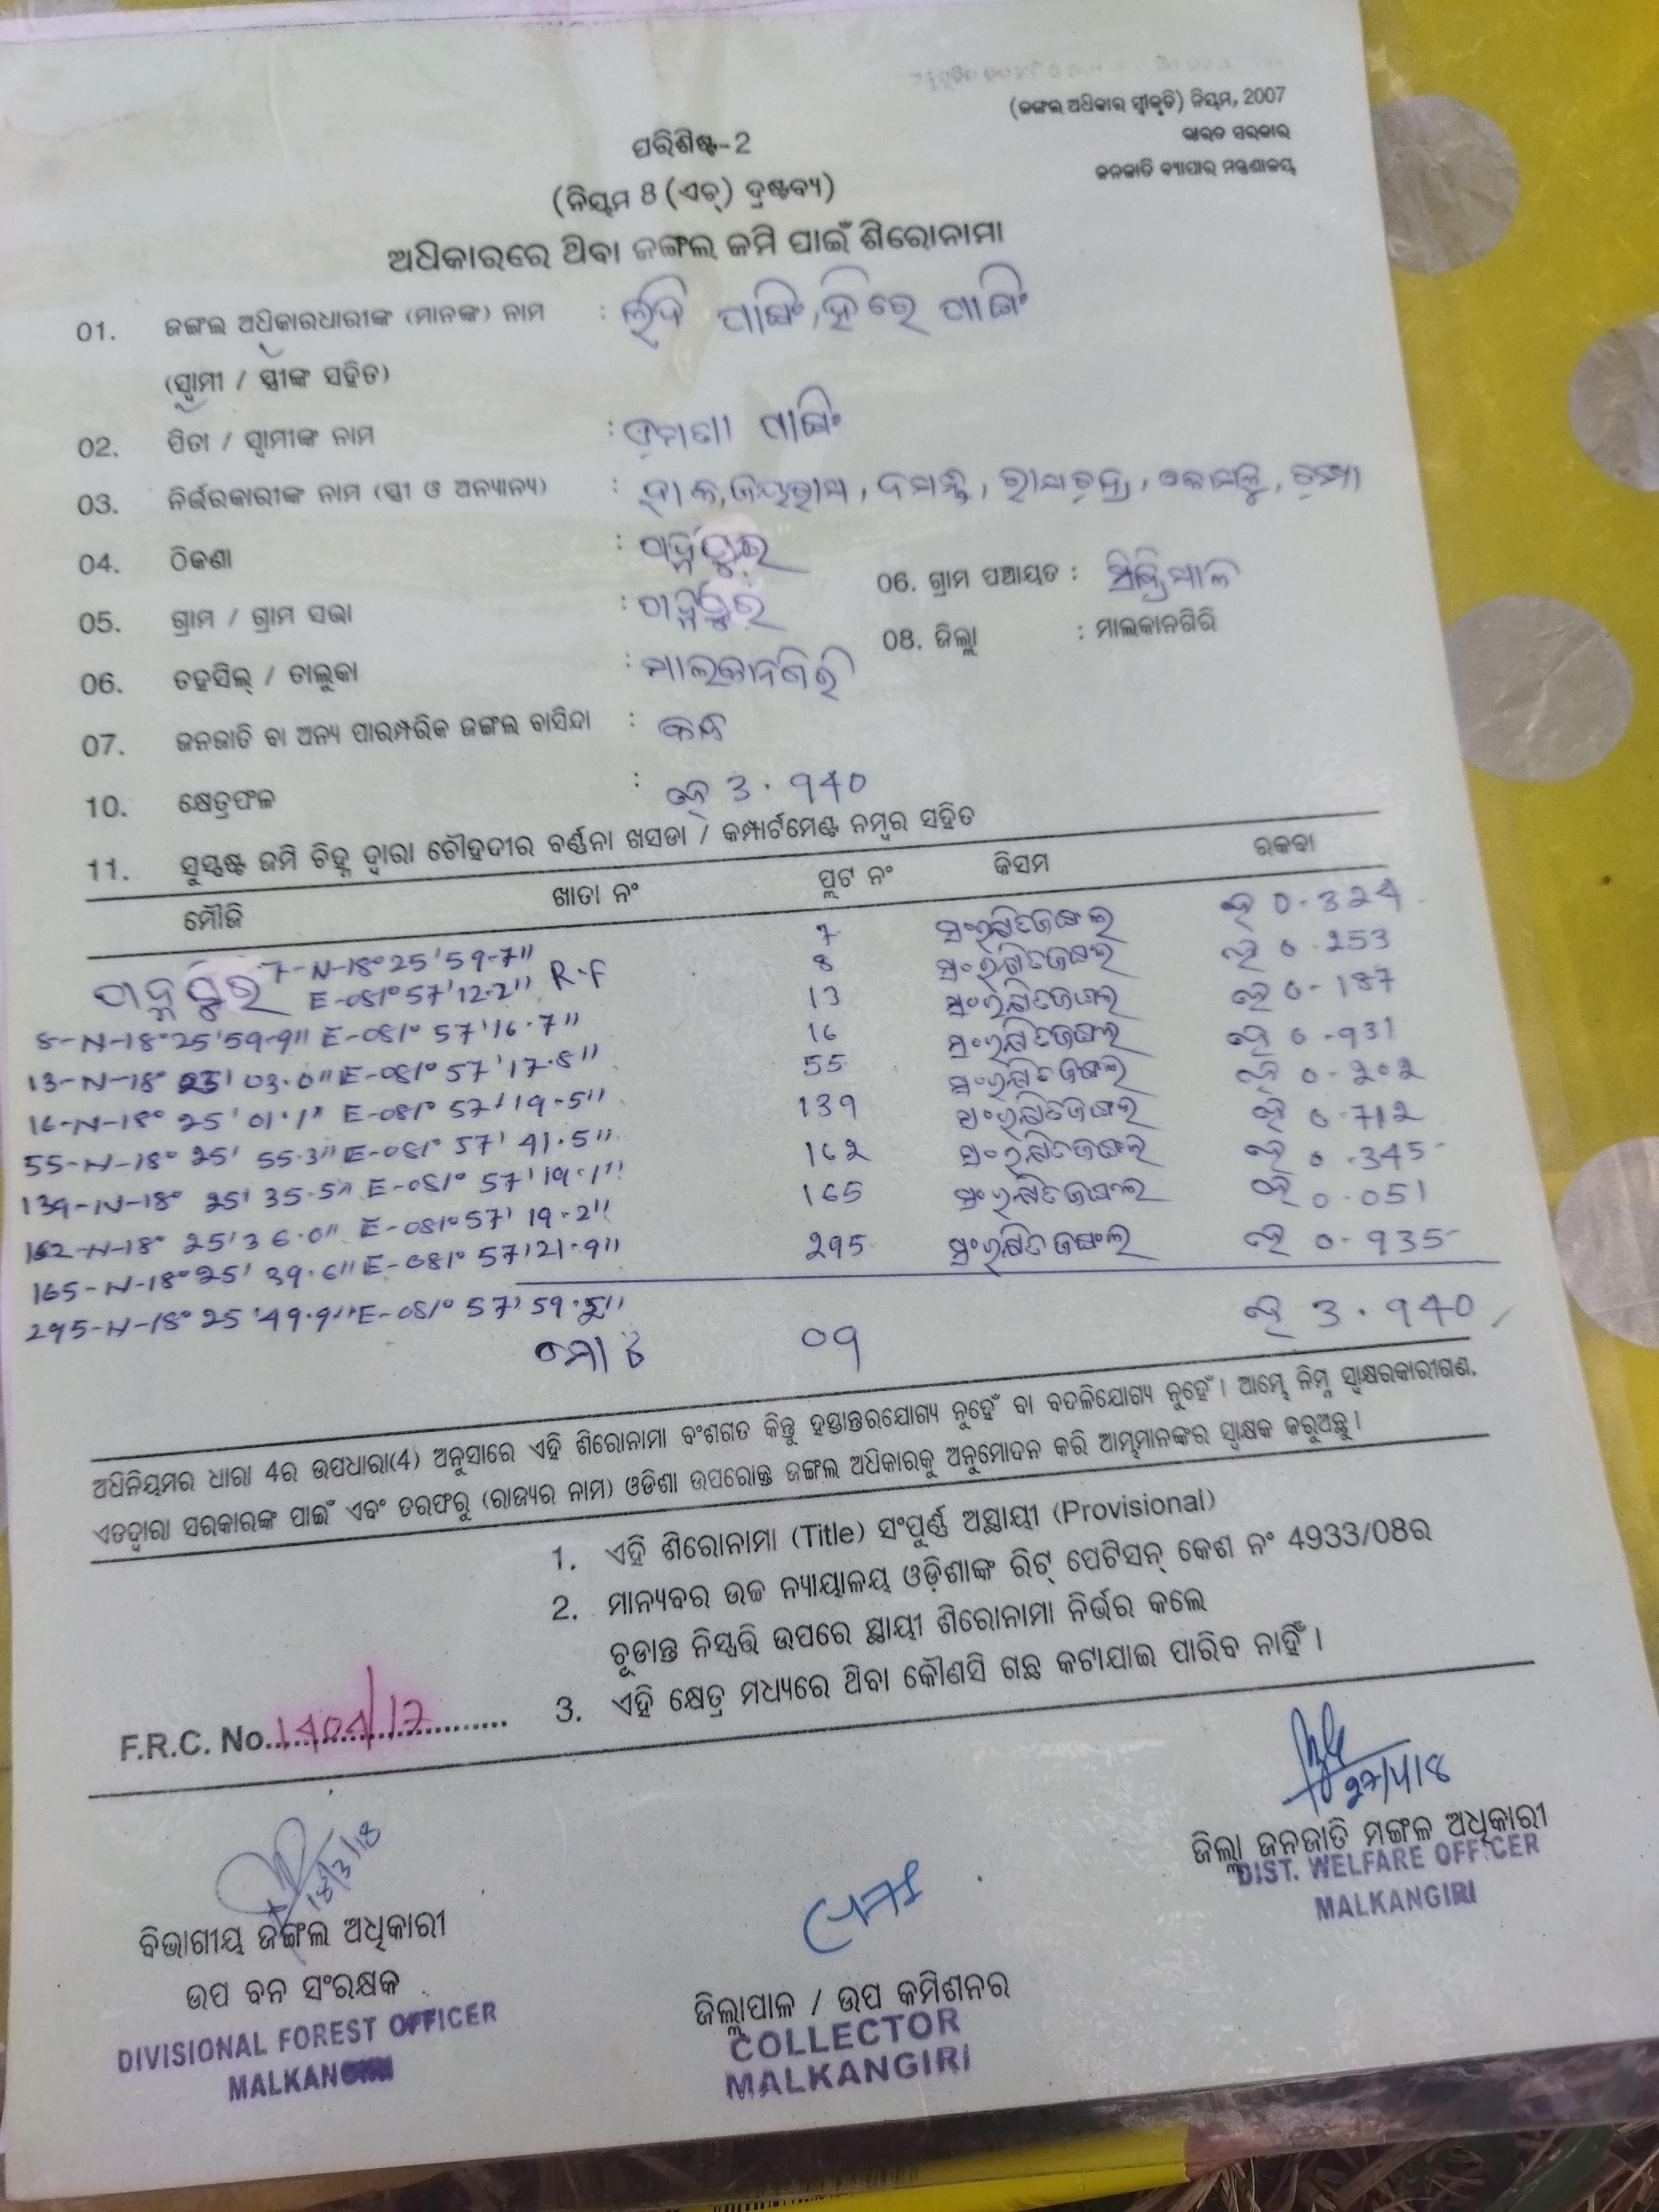 (ଜଙ୍ଗଲ ଅଧିକାର ସ୍ୱୀକୃତି) ନିୟମ, 2007
ଭାରତ ସରକାର
ଜନଜାତି ବ୍ୟାପାର ମନ୍ତ୍ରଣାଳୟ
ପରିଶିଷ୍ଟ-2
(ନିୟମ 8 (ଏଚ୍) ଦ୍ରଷ୍ଟବ୍ୟ)
ଅଧିକାରରେ ଥିବା ଜଙ୍ଗଲ ଜମି ପାଇଁ ଶିରୋନାମା
01. ଜଙ୍ଗଲ ଅଧିକାରଧାରୀଙ୍କ (ମାନଙ୍କ) ନାମ :
(ସ୍ୱାମୀ / ସ୍ତ୍ରୀଙ୍କ ସହିତ)
02. ପିତା / ସ୍ୱାମୀଙ୍କ ନାମ :
03. ନିର୍ଭରକାରୀଙ୍କ ନାମ (ସ୍ତ୍ରୀ ଓ ଅନ୍ୟାନ୍ୟ) :
04. ଠିକଣା :
05. ଗ୍ରାମ / ଗ୍ରାମ ସଭା : 06. ଗ୍ରାମ ପଞ୍ଚାୟତ :
06. ତହସିଲ୍ / ତାଲୁକା : ମାଲକାନଗିରି 08. ଜିଲ୍ଲା : ମାଲକାନଗିରି
07. ଜନଜାତି ବା ଅନ୍ୟ ପାରମ୍ପରିକ ଜଙ୍ଗଲ ବାସିନ୍ଦା :
10. କ୍ଷେତ୍ରଫଳ : ହେ 3.940
11. ସୁସ୍ପଷ୍ଟ ଜମି ଚିହ୍ନ ଦ୍ୱାରା ଚୌହଦୀର ବର୍ଣ୍ଣନା ଖସଡା / କମ୍ପାର୍ଟମେଣ୍ଟ ନମ୍ବର ସହିତ
ମୌଜି ଖାତା ନଂ ପ୍ଲଟ ନଂ କିସମ ରକବା
7-N-18°25'59.7" 7 ସଂରକ୍ଷିତ ଜଙ୍ଗଲ ହେ 0.324
E-081°57'12.2" R.F 8 ସଂରକ୍ଷିତ ଜଙ୍ଗଲ ହେ 0.253
8-N-18°25'59.9" E-081°57'16.7" 13 ସଂରକ୍ଷିତ ଜଙ୍ଗଲ ହେ 0.187
13-N-18° 03.0" E-081°57'17.8" 16 ସଂରକ୍ଷିତ ଜଙ୍ଗଲ ହେ 0.931
16-N-18° 25' 01.1" E-081°57'19.5" 55 ସଂରକ୍ଷିତ ଜଙ୍ଗଲ ହେ 0.202
55-N-18° 25' 55.3" E-081°57'41.5" 139 ସଂରକ୍ଷିତ ଜଙ୍ଗଲ ହେ 0.712
139-N-18° 25' 35.5" E-081°57'19.1" 162 ସଂରକ୍ଷିତ ଜଙ୍ଗଲ ହେ 0.345
162-N-18° 25'36.0" E-081°57'19.2" 165 ସଂରକ୍ଷିତ ଜଙ୍ଗଲ ହେ 0.051
165-N-18°25'39.6" E-081°57'21.9" 295 ସଂରକ୍ଷିତ ଜଙ୍ଗଲ ହେ 0.935
295-N-18°25'49.9" E-081°57'
ମୋଟ 09 ହେ 3.940
ଅଧିନିୟମର ଧାରା 4ର ଉପଧାରା(4) ଅନୁସାରେ ଏହି ଶିରୋନାମା ବଂଶଗତ କିନ୍ତୁ ହସ୍ତାନ୍ତରଯୋଗ୍ୟ ନୁହେଁ ବା ବଦଳିଯୋଗ୍ୟ ନୁହେଁ । ଆମ୍ଭେ ନିମ୍ନ ସ୍ୱାକ୍ଷରକାରୀଗଣ,
ଏତଦ୍ଦ୍ୱାରା ସରକାରଙ୍କ ପାଇଁ ଏବଂ ତରଫରୁ (ରାଜ୍ୟର ନାମ) ଓଡିଶା ଉପରୋକ୍ତ ଜଙ୍ଗଲ ଅଧିକାରକୁ ଅନୁମୋଦନ କରି ଆମ୍ଭମାନଙ୍କର ସ୍ୱାକ୍ଷକ କରୁଅଛୁ ।
1. ଏହି ଶିରୋନାମା (Title) ସଂପୂର୍ଣ୍ଣ ଅସ୍ଥାୟୀ (Provisional)
2. ମାନ୍ୟବର ଉଚ୍ଚ ନ୍ୟାୟାଳୟ ଓଡ଼ିଶାଙ୍କ ରିଟ୍ ପେଟିସନ୍ କେଶ ନଂ 4933/08ର
ଚୂଡାନ୍ତ ନିସ୍ପତ୍ତି ଉପରେ ସ୍ଥାୟୀ ଶିରୋନାମା ନିର୍ଭର କଲେ
3. ଏହି କ୍ଷେତ୍ର ମଧ୍ୟରେ ଥିବା କୌଣସି ଗଛ କଟାଯାଇ ପାରିବ ନାହିଁ ।
F.R.C. No. 1404/17
18/3/18
ବିଭାଗୀୟ ଜଙ୍ଗଲ ଅଧିକାରୀ
ଉପ ବନ ସଂରକ୍ଷକ
DIVISIONAL FOREST OFFICER
MALKANGIRI
ଜିଲ୍ଲାପାଳ / ଉପ କମିଶନର
COLLECTOR
MALKANGIRI
ଜିଲ୍ଲା ଜନଜାତି ମଙ୍ଗଳ ଅଧିକାରୀ
DIST. WELFARE OFFICER
MALKANGIRI